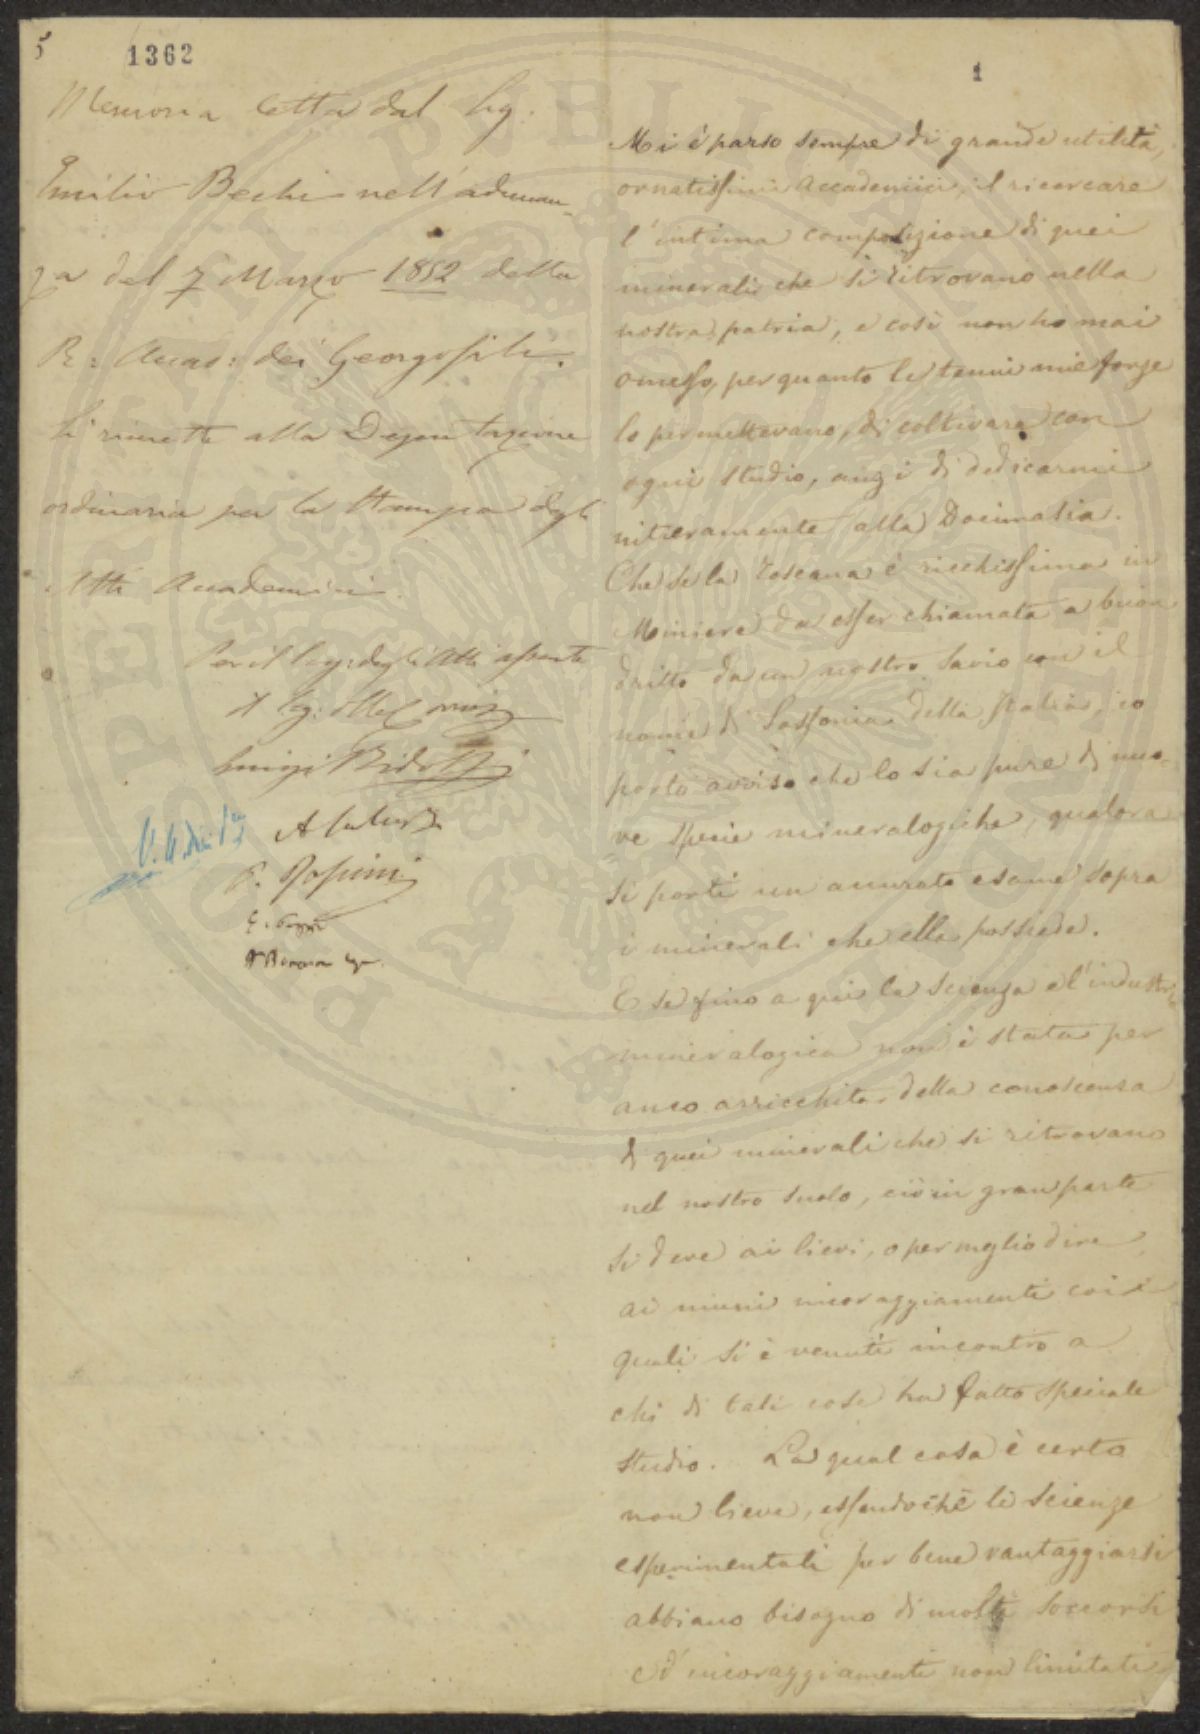 1362
1
Memoria letta dal Sig.
Emilio Bechi nell'adunan-
za del 7 Marzo 1852 della
R: Accad: dei Georgofili.
Si rimette alla Deputazione
ordinaria per la Stampa degli
Atti Accademici.
Per il Seg: degli Atti assente
Luigi Ridolfi
Mi è parso sempre di grande utilità,
ornatissimi Accademici, il ricercare
l'intima composizione di quei
minerali che si ritrovano nella
nostra patria, e così non ho mai
omesso, per quanto le tenui mie forze
lo permettevano, di coltivare con
ogni studio, anzi di dedicarmi
intieramente alla Docimasia.
Che se la Toscana è ricchissima in
Miniere da esser chiamata a buon
dritto da un nostro Savio con il
nome di Sassonia della Italia, io
porto avviso che lo sia pure di nuo-
ve specie mineralogiche, qualora
si porti un accurato esame sopra
i minerali che ella possiede.
E se fino a qui la scienza e l'industria
mineralogica non è stata per
anco arricchita della conoscenza
di quei minerali che si ritrovano
nel nostro suolo, ciò in gran parte
si deve ai lievi, o per meglio dire
ai niuni incoraggiamenti coi
quali si è venuti incontro a
chi di tali cose ha fatto speciale
studio. La qual cosa è certo
non lieve, essendochè le scienze
esperimentali per bene vantaggiarsi
abbiano bisogno di molti soccorsi
ed incoraggiamenti non limitati